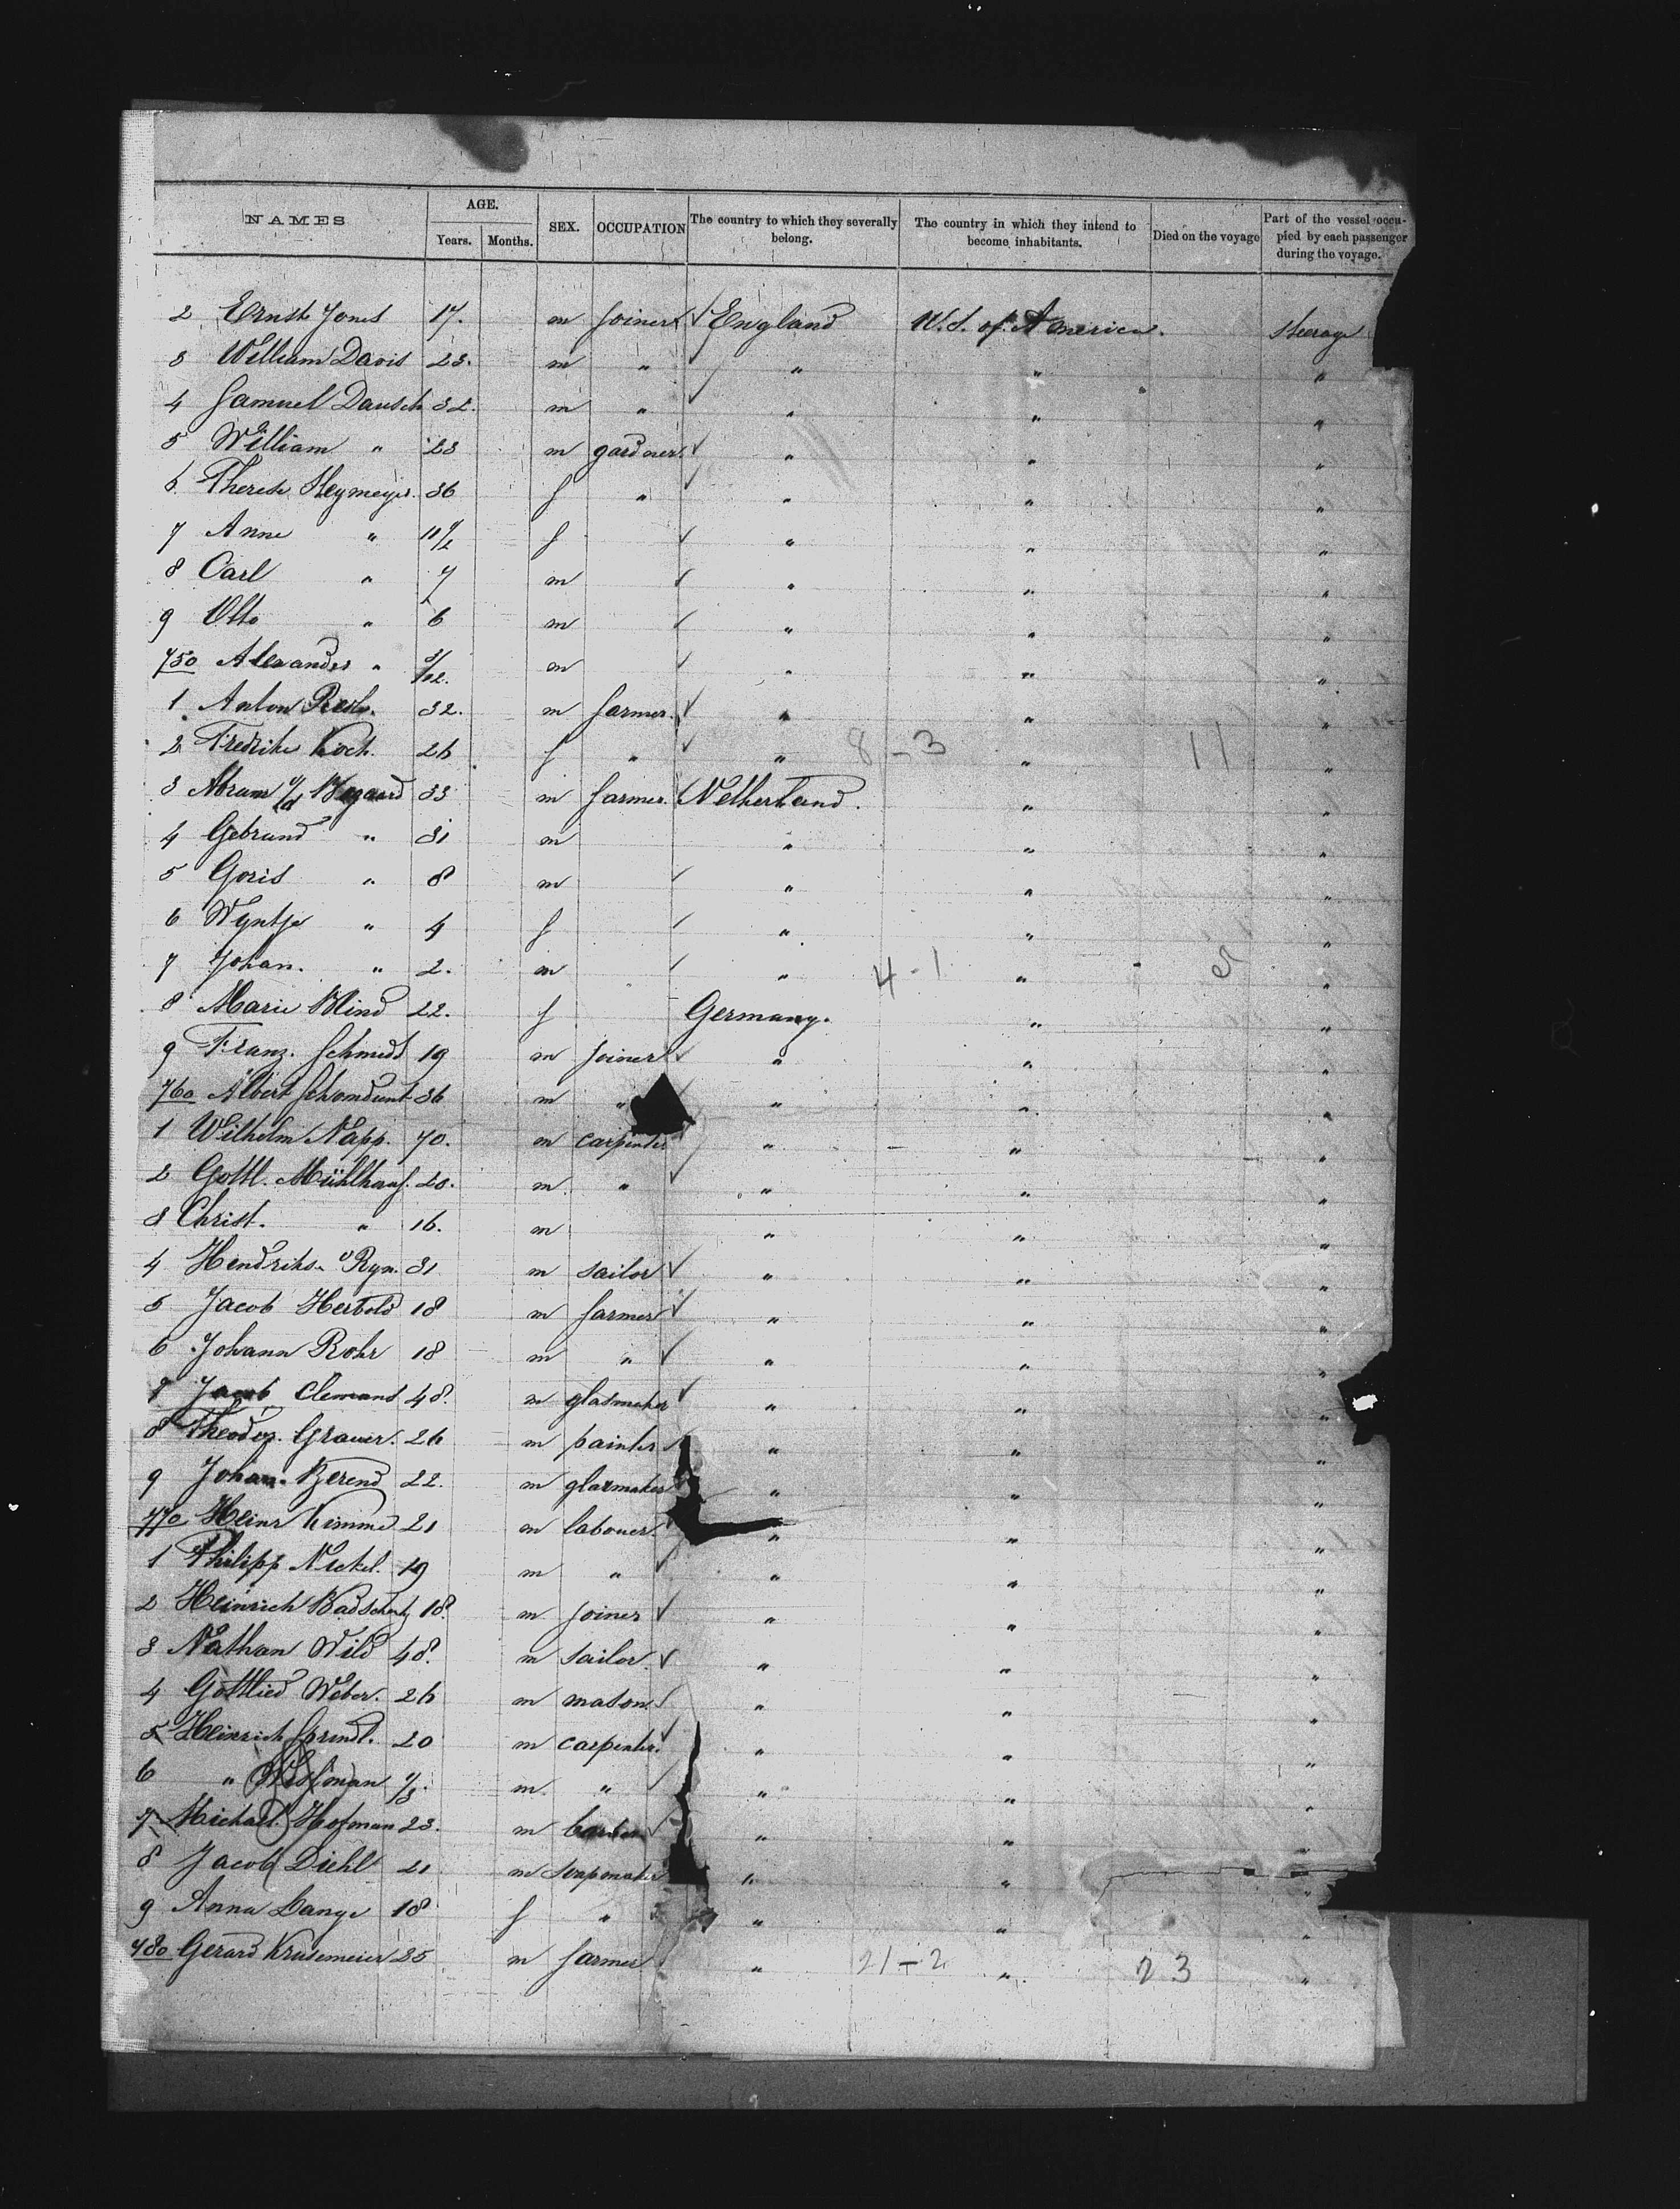 NAMES AGE. SEX. OCCUPATION The country to which they severally belong. The country in which they intend to become inhabitants. Died on the voyage Part of the vessel occupied by each passenger during the voyage.
Years. Months.
2 Ernst Jones 17. m joiner England U.S. of America. steerage
3 William Davis 23. m " " " "
4 Samuel Dausch 32. m " " " "
5 William " 23 m gardner " " "
6. Therese Heymeyer. 36 f " " " "
7 Anne " 11/2 f " " "
8 Carl " 7 m " " "
9 Otto " 6 m " " "
750 Alexander " 3/12. m " " "
1 Anton 32. m farmer. " " "
2 Fredrike Koch. 26 f " " 8-3 " 11 "
3 Abram v/d 33 m farmer. Netherland. " "
4 Gebrand " 31 m " " "
5 Goris " 8 m " " "
6 Wyntje " 4 f " " "
7 Johan. " 2. m " 4-1 " "
8 Marie Blind 22. f Germany. " "
9 Franz. Schmidt 19 m joiner " " "
760 Albert 36 m " " " "
1 Wilhelm Napp. 70. m carpenter " " "
2 Gottl. Mühlhauf. 20. m " " " "
3 Christ. " 16. m " " "
4 Hendriks v Ryn. 31 m sailor " " "
5 Jacob Herbold 18 m farmer " " "
6 Johann Rohr 18 m " " " "
7 Jacob Clemans 48. m glasmaker " " "
8 Theodor. Grauer. 26 m painter " " "
9 Johan. Berend 22. m glasmaker " " "
770 Heinr Kimme 21 m labouer. " " "
1 Philipp Nickel. 19 m " " " "
2 Heinrich 18. m joiner " " "
3 Nathan Wild 48. m sailor. " " "
4 Gottlied Weber. 26 m mason. " " "
5 Heinrich 20 m carpenter. " " "
6 " m " " " "
7 Michael Hofman 23. m " " "
8 Jacob Diehl 21 m soapmaker " " "
9 Anna Lange 18 f " " " "
780 Gerard Krusemeier 25 m farmer " 21-2 " 23 "